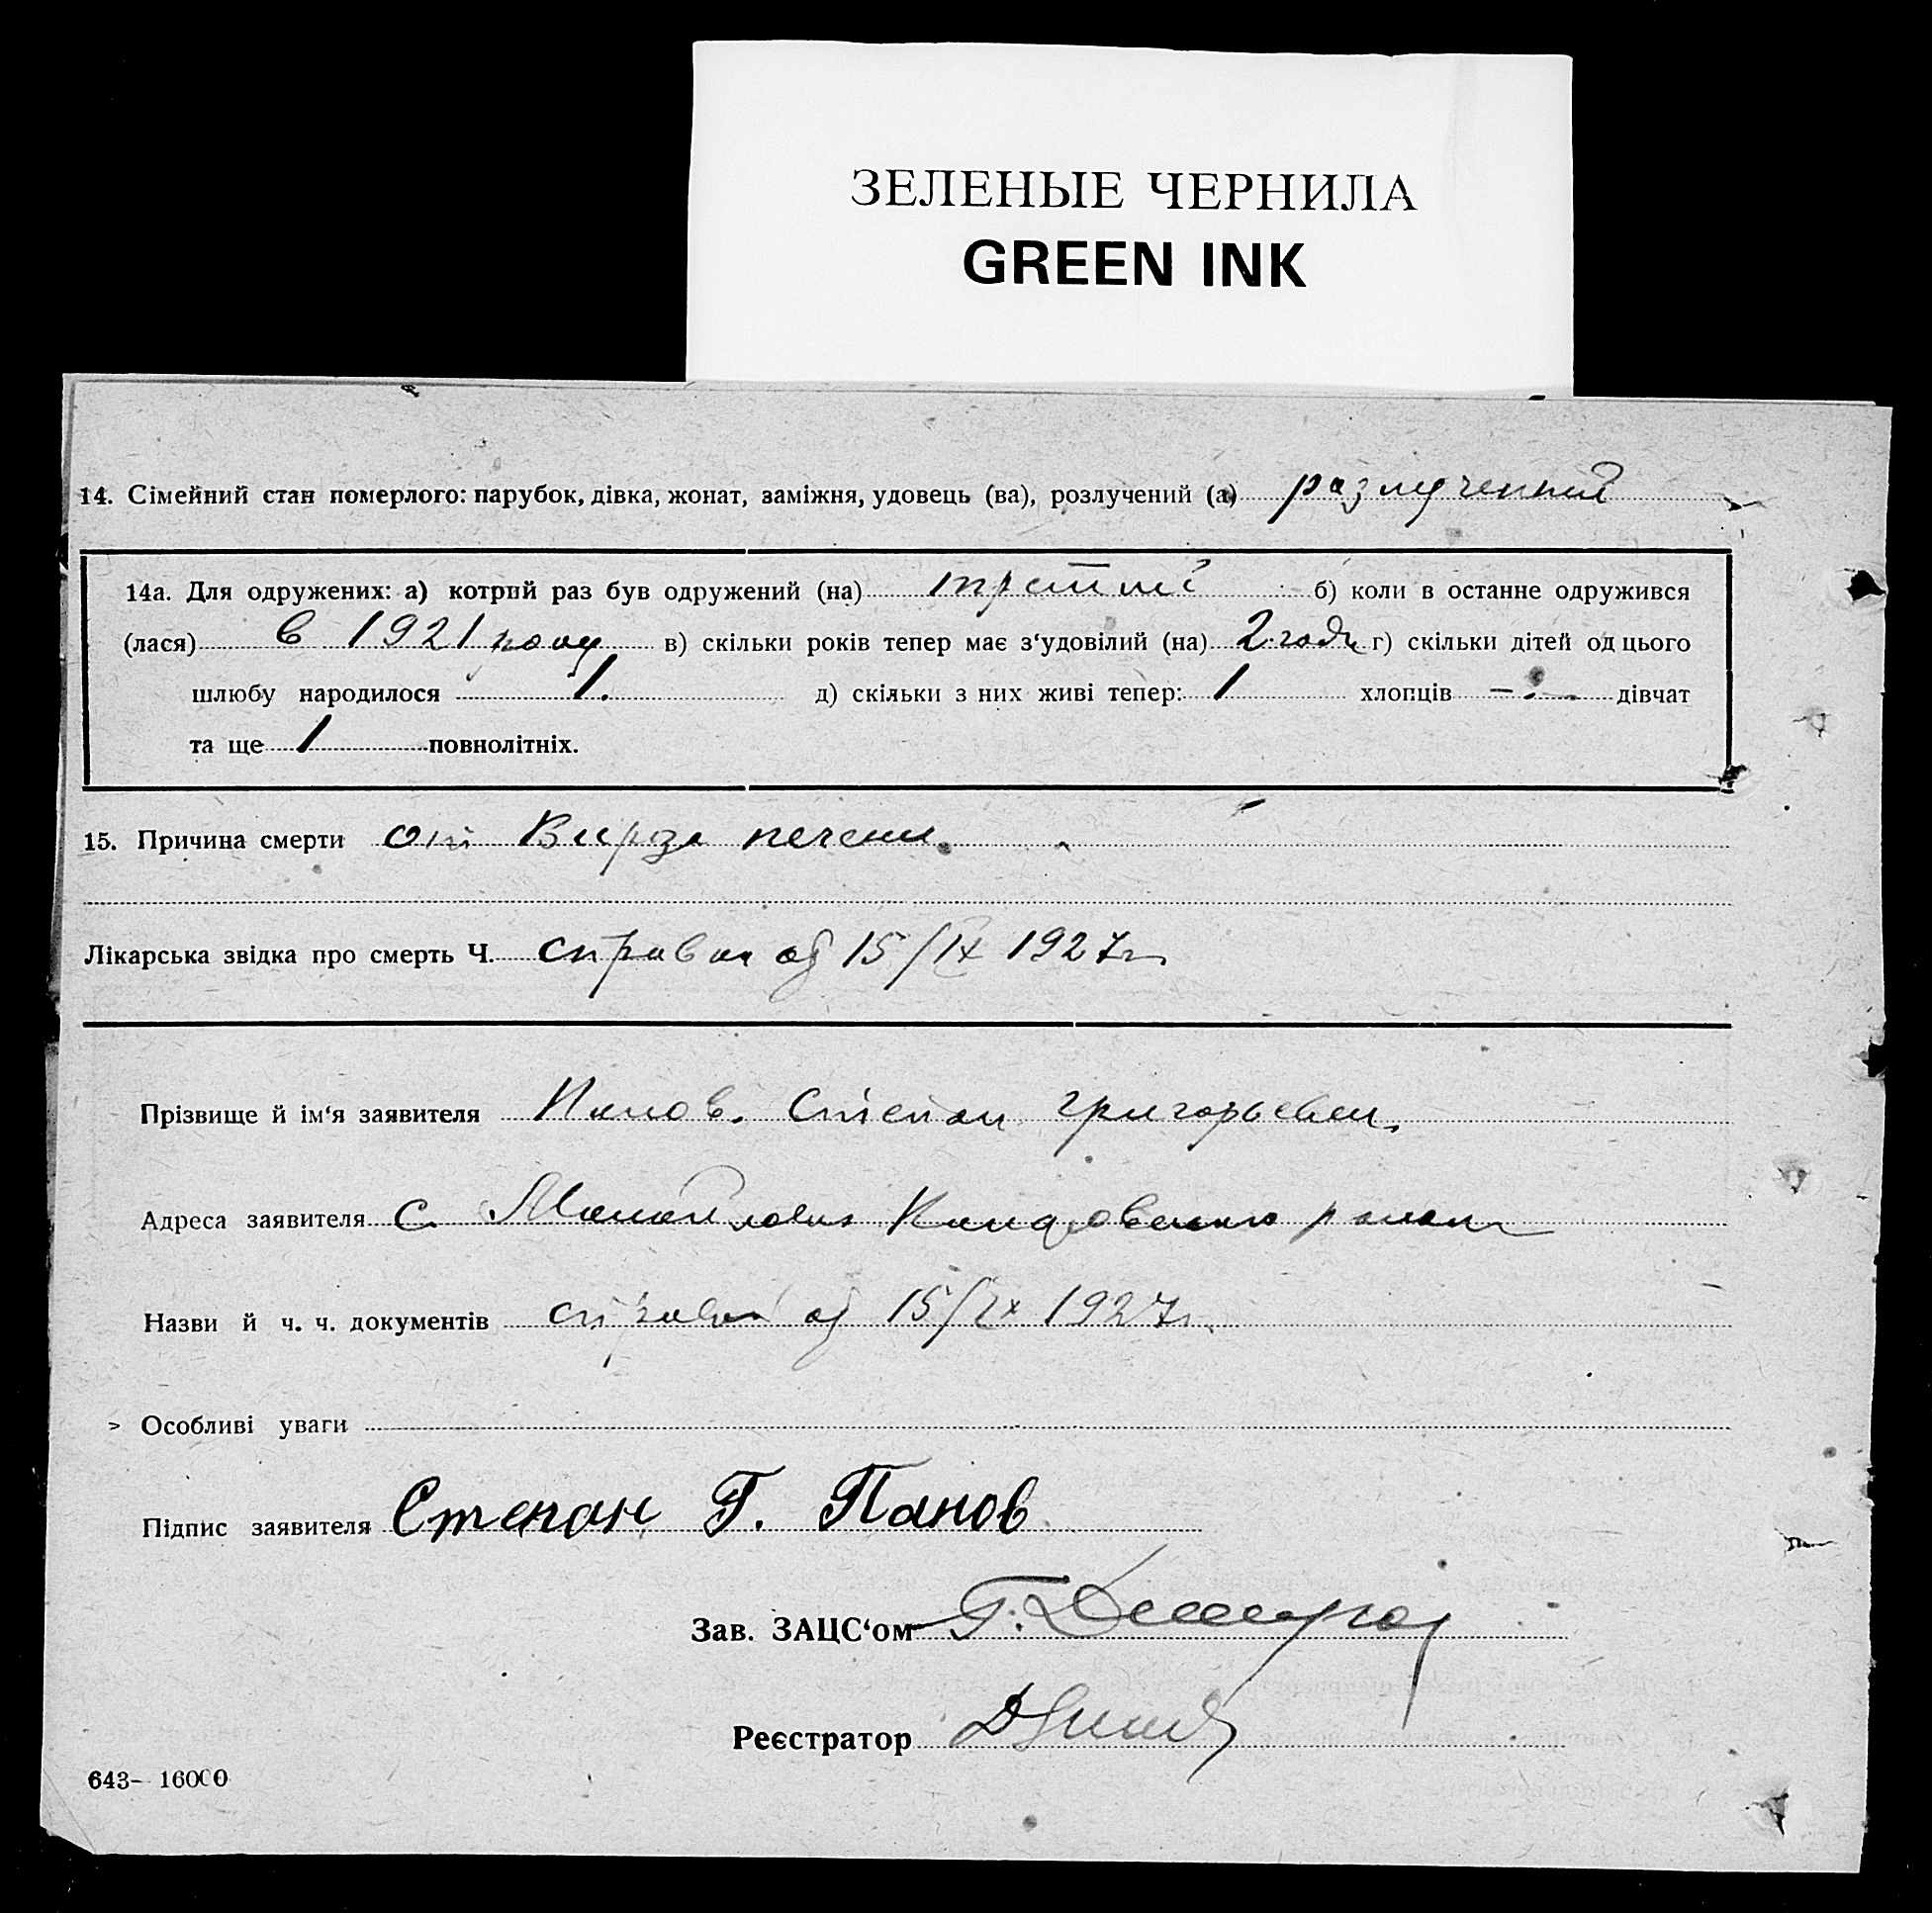 ЗЕЛЕНЫЕ ЧЕРНИЛА
GREEN INK
14. Сімейний стан померлого: парубок, дівка, жонат, заміжня, удовець (ва), розлучений (а) разлученный
14а. Для одружених: а) котрий раз був одружений (на) третий б) коли в останне одружився
(лася) в 1921 году в) скільки років тепер має з‘удовілий (на) 2 года г) скільки дітей од цього
шлюбу народилося 1. д) скільки з них живі тепер: 1 хлопців — дівчат
та ще 1 повнолітніх.
15. Причина смерти от печени.
Лікарська звідка про смерть Ч. справка од 15/IX 1927 г.
Прізвище й ім‘я заявителя Панов. Степан Григорьевич.
Адреса заявителя с. района
Назви й ч. ч. документів справка од 15/IX 1927 г.
> Особливі уваги
Підпис заявителя Степан Г. Панов
Зав. ЗАЦС‘ом Г.
Реєстратор
643— 16000